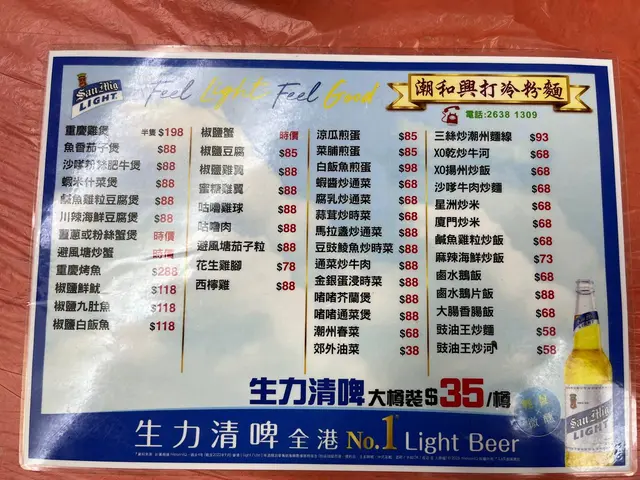 San Mig
LIGHT
Feel Light Feel Good
潮和興打冷粉麵
電話:2638 1309
重慶雞煲 半隻 $198
魚香茄子煲 $88
沙嗲粉絲肥牛煲 $88
蝦米什菜煲 $88
鹹魚雞粒豆腐煲 $88
川辣海鮮豆腐煲 $88
薑蔥或粉絲蟹煲 時價
避風塘炒蟹 時價
重慶烤魚 $288
椒鹽鮮魷 $118
椒鹽九肚魚 $118
椒鹽白飯魚 $118
椒鹽蟹 時價
椒鹽豆腐 $85
椒鹽雞翼 $88
蜜糖雞翼 $88
咕嚕雞球 $88
咕嚕肉 $88
避風塘茄子粒 $88
花生雞腳 $78
西檸雞 $88
涼瓜煎蛋 $85
菜脯煎蛋 $85
白飯魚煎蛋 $98
蝦醬炒通菜 $68
腐乳炒通菜 $68
蒜茸炒時菜 $68
馬拉盞炒通菜 $88
豆豉鯪魚炒時菜 $88
通菜炒牛肉 $88
金銀蛋浸時菜 $88
啫啫芥蘭煲 $88
啫啫通菜煲 $88
潮州春菜 $68
郊外油菜 $38
三絲炒潮州麵線 $93
XO乾炒牛河 $68
XO揚州炒飯 $68
沙嗲牛肉炒麵 $68
星洲炒米 $68
廈門炒米 $68
鹹魚雞粒炒飯 $68
麻辣海鮮炒飯 $73
鹵水鵝飯 $68
鹵水鵝片飯 $88
大腸香腸飯 $68
豉油王炒麵 $58
豉油王炒河 $58
生力清啤 大樽裝 $35/樽
生力清啤 全港 No.1 Light Beer
San Mig
LIGHT